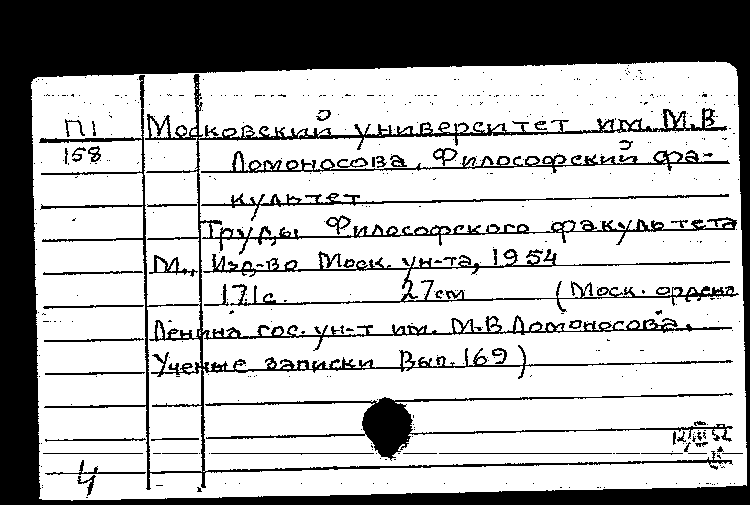 П1 Московский университет им. М.В
158 Ломоносова. Философский фа-
культет
Труды Философского факультета
М., Изд-во Моск. ун-та, 1954
171с. 27см (Моск. ордена
Ленина гос. ун-т им. М.В Ломоносова.
Ученые записки Вып. 169)
4